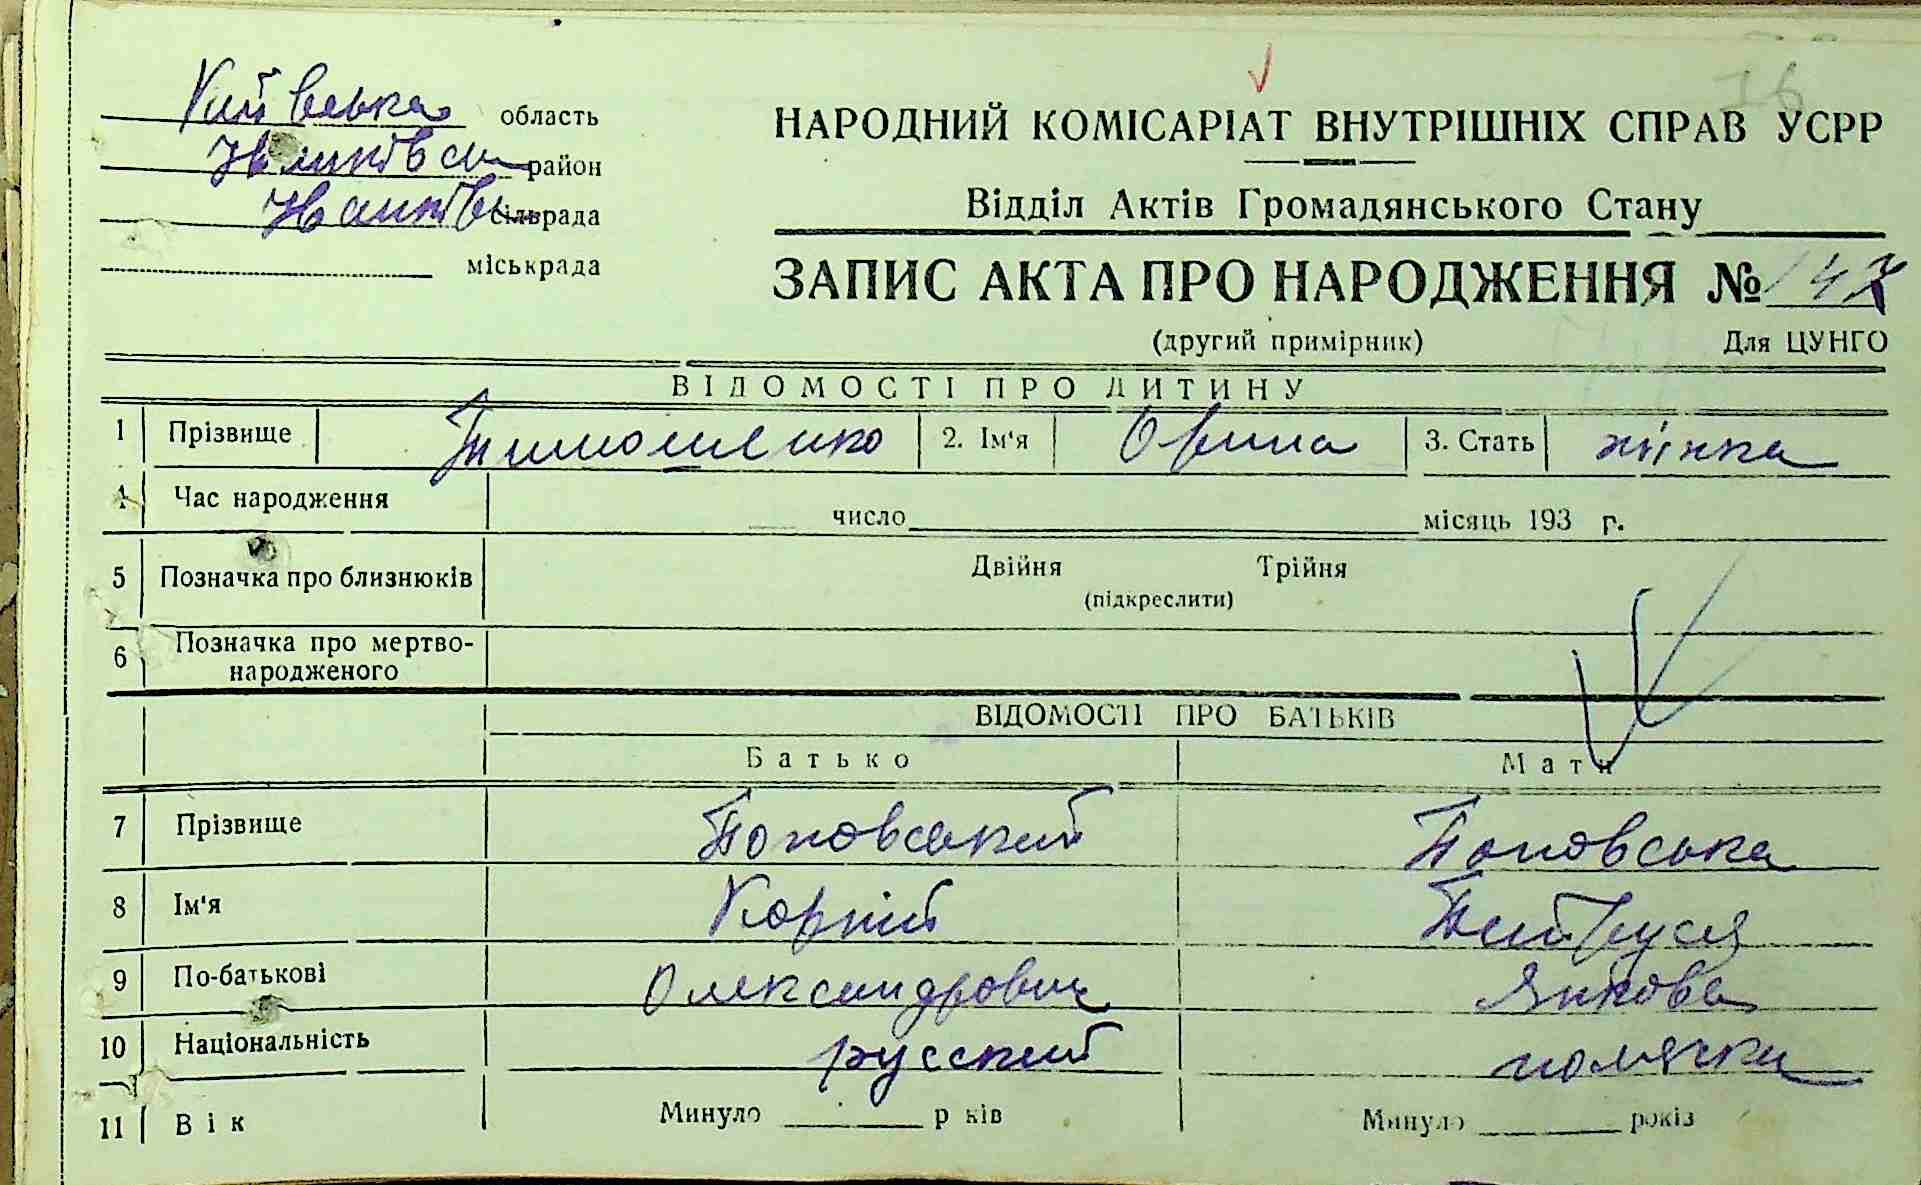 76
Київська область
НАРОДНИЙ КОМІСАРІАТ ВНУТРІШНІХ СПРАВ УСРР
район
Відділ Актів Громадянського Стану
сільрада
міськрада
ЗАПИС АКТА ПРО НАРОДЖЕННЯ № 147
(другий примірник) Для ЦУНГО
ВІДОМОСТІ ПРО ДИТИНУ
1 Прізвище Тимошенко 2. Ім'я Орина 3. Стать жінка
4 Час народження число місяць 193 г.
5 Позначка про близнюків Двійня Трійня
(підкреслити)
6 Позначка про мертво-
народженого
ВІДОМОСТІ ПРО БАТЬКІВ
Батько Мати
7 Прізвище Поповський Поповська
8 Ім'я Корній
9 По-батькові Олександрович Янкова
10 Національність русский полячка
11 Вік Минуло р ків Минуло років